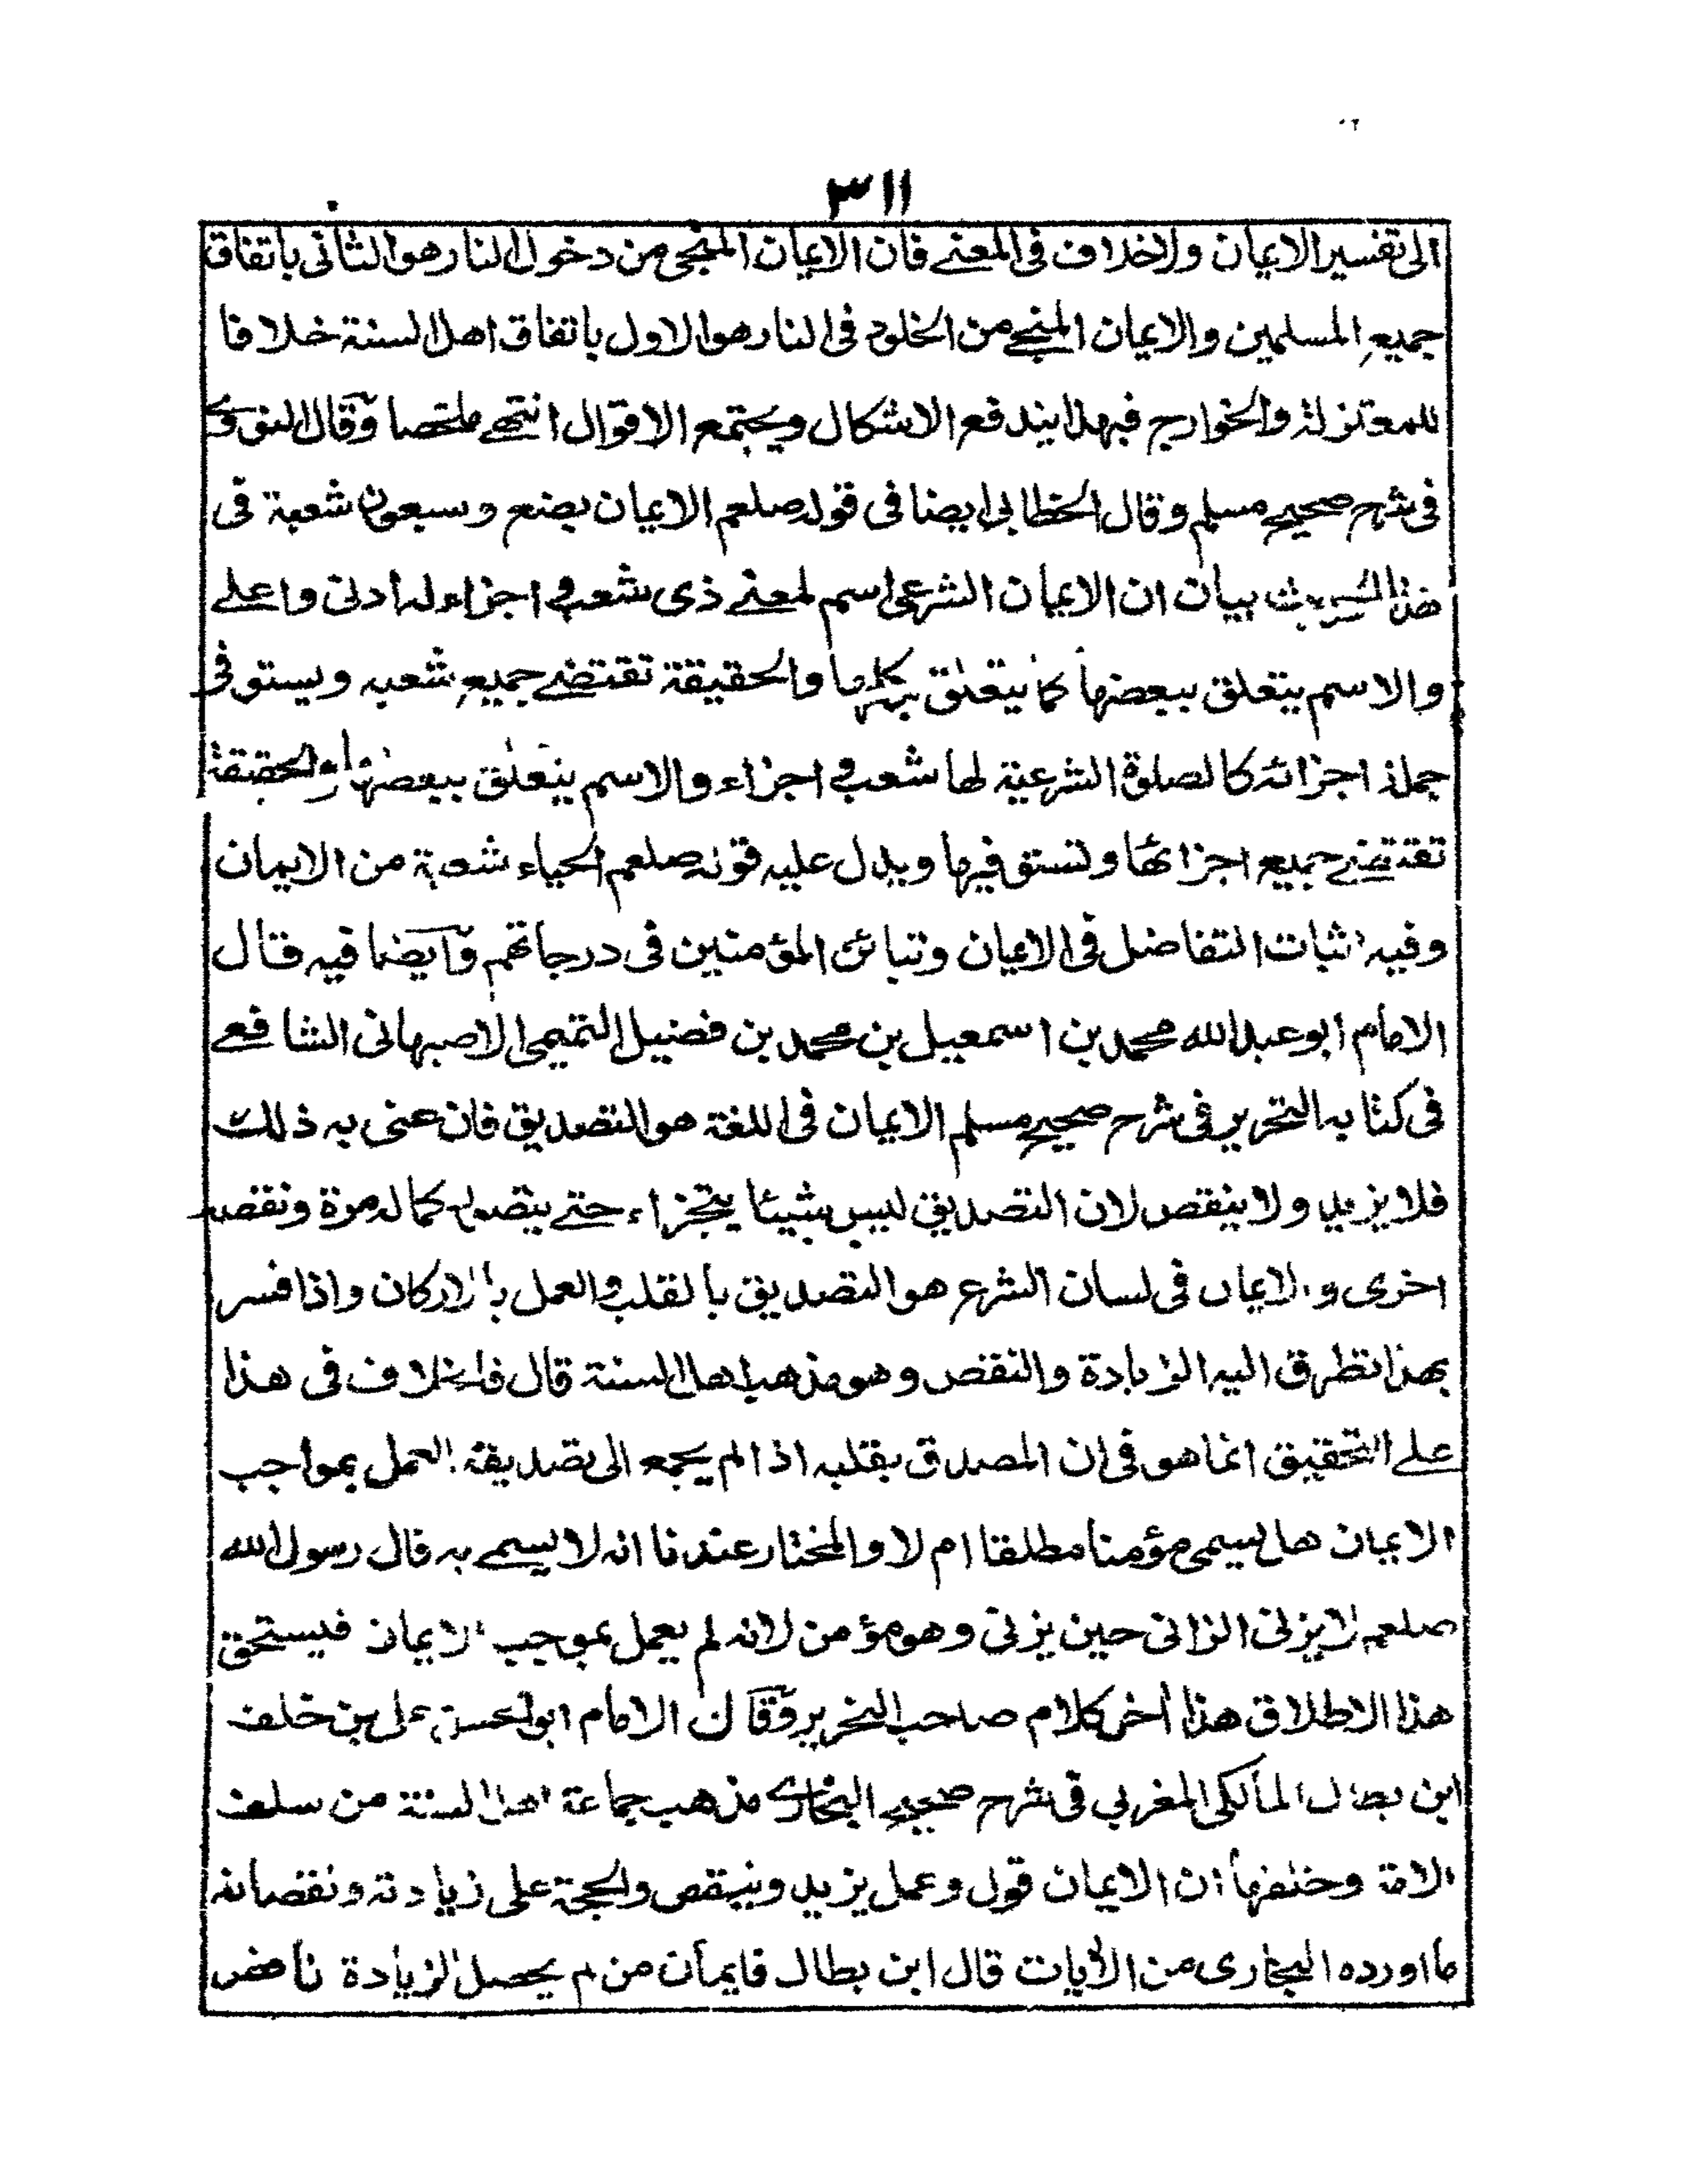 ٣١١
الى تفسير الايمان ولا خلاف فى المعنے فان الايمان المنجى من دخول النار هو الثانى باتفاق
جميع المسلمين والايمان المنجے من الخلود فى النار هو الاول باتفاق اهل السنة خلافا
للمعتزلة والخوارج فبهذا يندفع الاشكال ويجتمع الاقوال انتهے ملخصا وقال النووے
فى شرح صحيح مسلم وقال الخطابى ايضا فى قوله صلعم الايمان بضع وسبعون شعبة فى
هذا الحديث بيان ان الايمان الشرعى اسم لمعنے ذى شعب واجزاء له ادنى واعلے
والاسم يتعلق ببعضها كما يتعلق بكلها والحقيقة تقتضے جميع شعبه ويستوفى
جملة اجزائه كالصلوة الشرعية لها شعب واجزاء والاسم يتعلق ببعضها والحقيقة
تقتضے جميع اجزائها وتستوفيها ويدل عليه قوله صلعم الحياء شعبة من الايمان
وفيه اثبات التفاضل فى الايمان وتبائن المؤمنين فى درجاتهم وايضا فيه قال
الامام ابو عبد الله محمد بن اسمعيل بن محمد بن فضيل التميمى الاصبهانى الشافعے
فى كتابه التحرير فى شرح صحيح مسلم الايمان فى اللغة هو التصديق فان عنى به ذلك
فلا يزيد ولا ينقص لان التصديق ليس شيئا يتجزاء حتے يتصور كماله مرة ونقصه
اخرى والايمان فى لسان الشرع هو التصديق بالقلب والعمل بالاركان واذا فسر
بهذا تطرق اليه الزيادة والنقص وهو مذهب اهل السنة قال فالخلاف فى هذا
علے التحقيق انما هو فى ان المصدق بقلبه اذا لم يجمع الى تصديقه العمل بمواجب
الايمان هل يسمى مؤمنا مطلقا ام لا والمختار عندنا انه لا يسمے به قال رسول الله
صلعم لا يزنى الزانى حين يزنى وهو مؤمن لانه لم يعمل بموجب الايمان فيستحق
هذا الاطلاق هذا اخر كلام صاحب التحرير وقال الامام ابو الحسن على بن خلف
ابن بطال المالكى المغربى فى شرح صحيح البخارے مذهب جماعة اهل السنة من سلف
الامة وخلفها ان الايمان قول وعمل يزيد وينقص والحجة على زيادته ونقصانه
ما اورده البخارى من الآيات قال ابن بطال فايمان من لم يحصل الزيادة ناقص